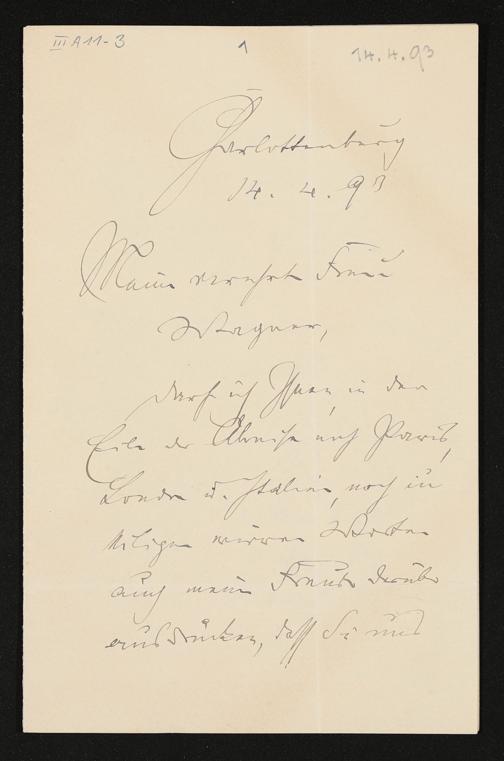 III A 11-3
1
14.4.93
Charlottenburg
14. 4. 93
Meine verehrte Frau
Wagner,
darf ich Ihnen, in der
Eile der Abreise nach Paris,
London u. Italien, noch in
eiligen wirren Worten
auch meine Freude darüber
ausdrücken, daß Sie uns